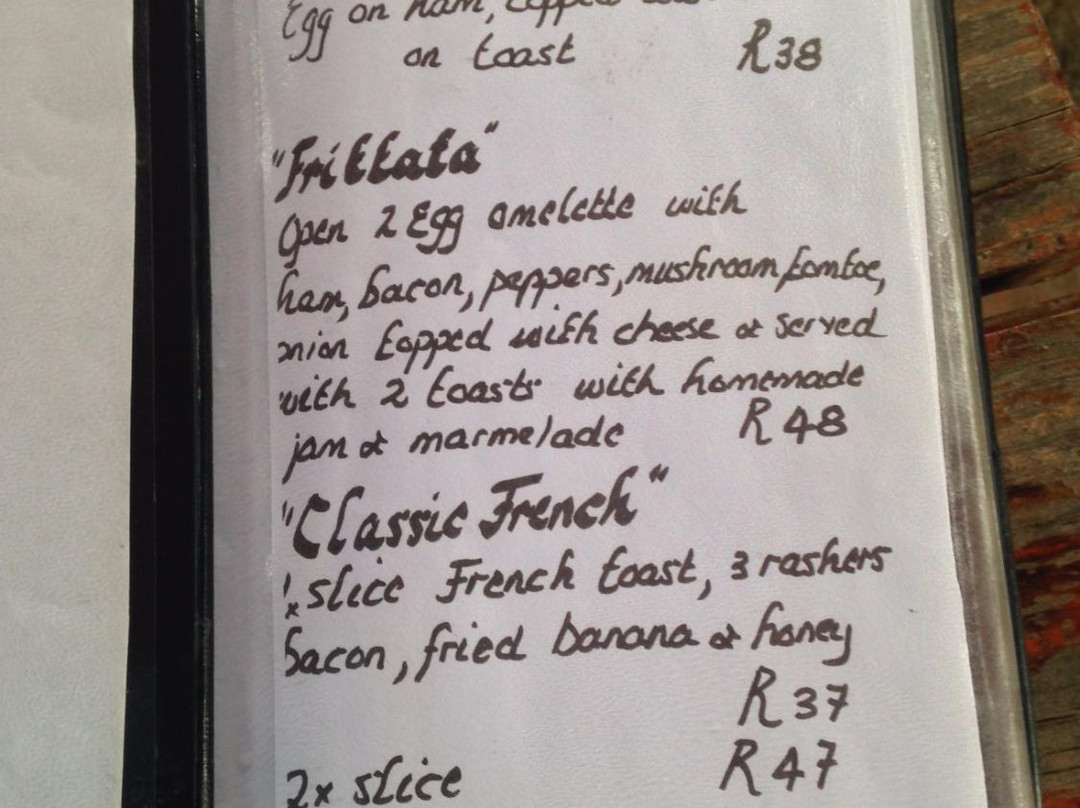 Egg on ham, topped
on toast R38
"Frittata"
Open 2 Egg omelette with
ham, bacon, peppers, mushroom, tomtoe,
onion topped with cheese & served
with 2 toasts with homemade
jam & marmelade R48
"Classic French"
1x slice French toast, 3 rashers
bacon, fried banana & honey
R37
2x slice R47